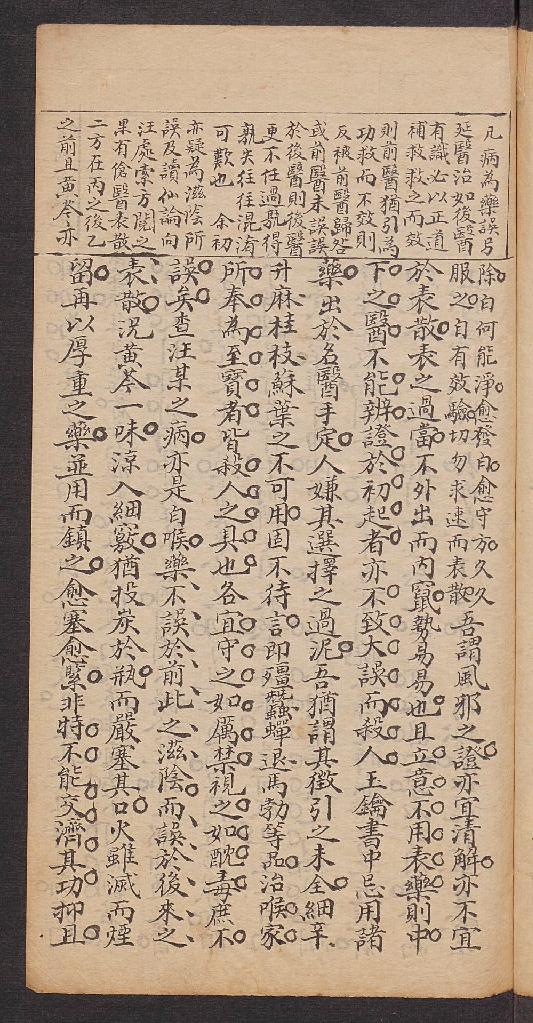 凡病為藥誤另
延醫治如後醫
有識必以正道
補救救之而效
則前醫猶引為
功救而不效則
反被前醫歸咎
或前醫未誤誤
於後醫則後醫
更不任過孰得
孰失往往混淆
可歎也　余初
亦疑為滋陰所
誤及讀仙論向
汪處索方閱之
果有傖醫表散
二方在丙之後乙
之前且黃芩亦
除白何能淨愈發白愈守方久久
服之自有效驗切勿求速而表散吾謂風邪之證亦宜清解亦不宜
於表散表之過當不外出而內竄勢易易也且立意不用表藥則中
下之醫不能辨證於初起者亦不致大誤而殺人玉鑰書中忌用諸
藥出於名醫手定人嫌其選擇之過泥吾猶謂其徵引之未全細辛
升麻桂枝蘇葉之不可用固不待言即殭蠶蟬退馬勃等品治喉家
所奉為至寶者皆殺人之具也各宜守之如厲禁視之如酖毒庶不
誤矣查汪某之病亦是白喉藥不誤於前此之滋陰而誤於後來之
表散況黃芩一味涼入細竅猶投炭於瓶而嚴塞其口火雖滅而煙
留再以厚重之藥並用而鎮之愈塞愈緊非特不能交濟其功抑且